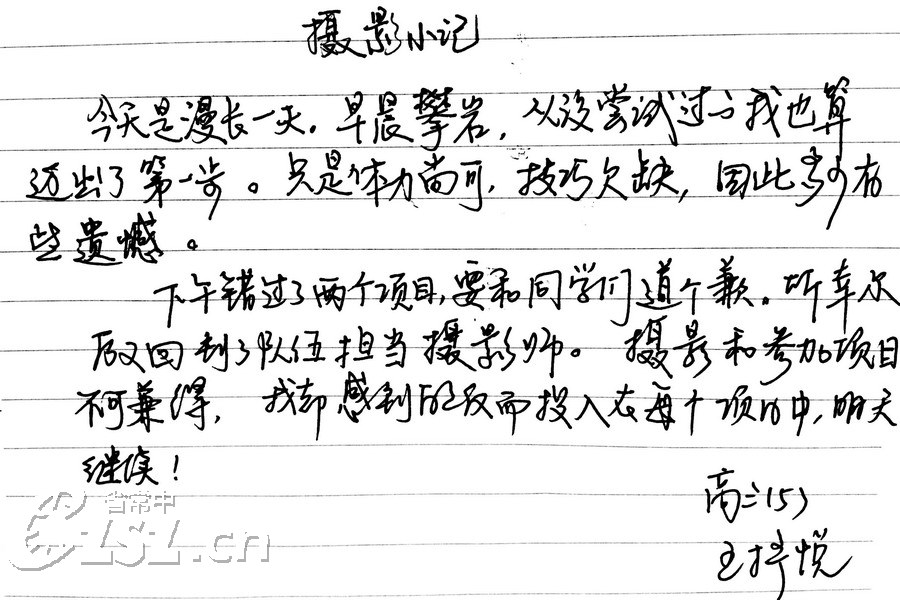 摄影小记
今天是漫长一天。早晨攀岩，从没尝试过的我也算
迈出了第一步。只是体力尚可，技巧欠缺，因此多少有
些遗憾。
下午错过了两个项目，要和同学们道个歉。所幸尔
后又回到了队伍担当摄影师。摄影和参加项目
不可兼得，我却感到反而投入在每个项目中，明天
继续！
高三(5)
王 悦
省常中
CZSZ.cn